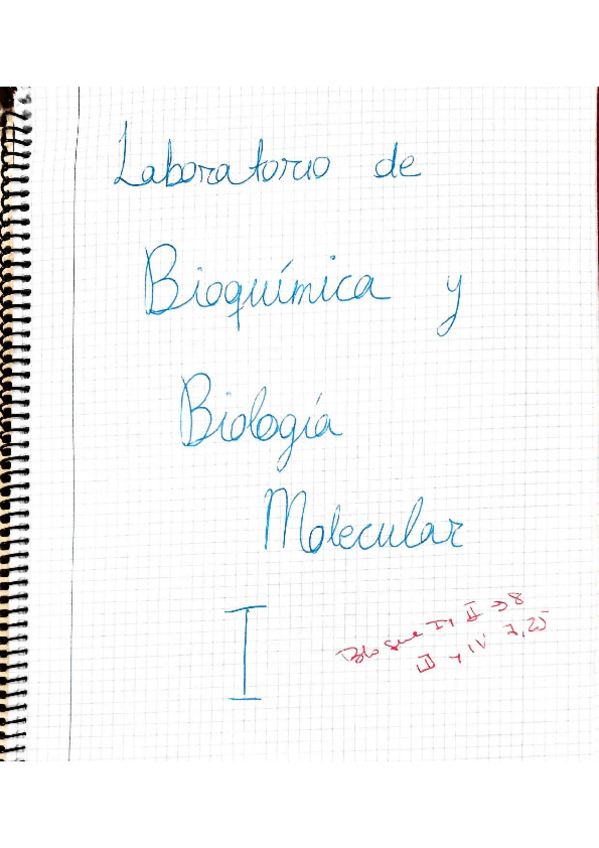 Laboratorio de
Bioquímica y
Biología
Molecular
I
Bloque I y II → 8
III y IV 7,25